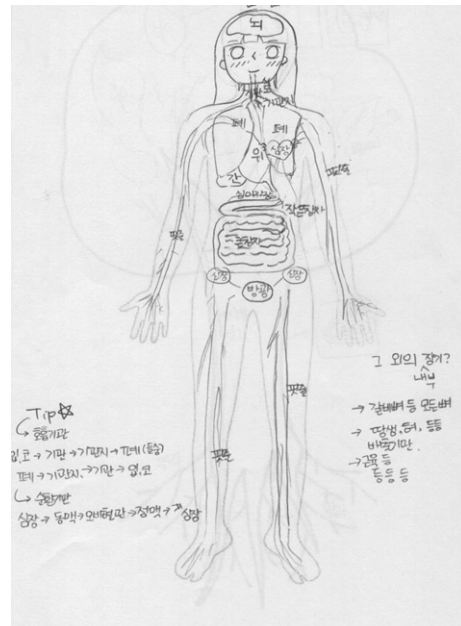 뇌
기관지
폐
폐
심장
위
간
십이지장
핏줄
핏줄
방광
핏줄
핏줄
그 외의 장기?
내부
→ 갈비뼈 등 모든뼈
→ 땀샘, 혀, 등등
배출기관.
→ 근육 등
등등 등
Tip☆
↳ 호흡기관
입, 코 → 기관 → 기관지 → 폐 (들숨)
폐 → 기관지 → 기관 → 입, 코
↳ 순환기관
심장 → 동맥 → 모세혈관 → 정맥 → 심장